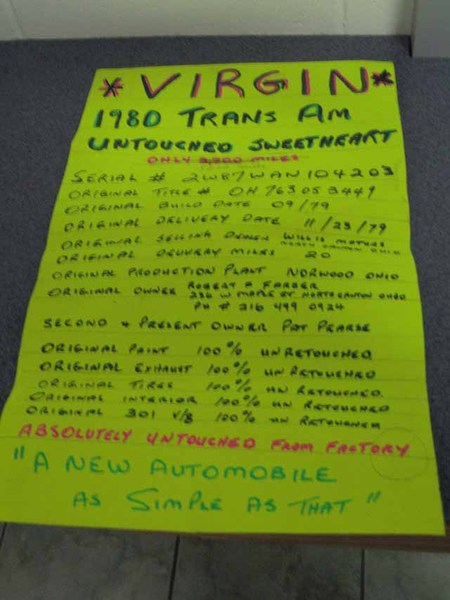 * VIRGIN *
1980 TRANS AM
UNTOUCHED SWEETHEART
ONLY 3,200 MILES
SERIAL # 2W87WAN104203
ORIGINAL TITLE # OH 763053449
ORIGINAL BUILD DATE 09/79
ORIGINAL DELIVERY DATE 11/23/79
ORIGINAL SELLING DEALER WILLIS MOTORS
NORTH CANTON OHIO
ORIGINAL DELIVERY MILES 20
ORIGINAL PRODUCTION PLANT NORWOOD OHIO
ORIGINAL OWNER ROBERT F FARBER
236 W MAPLE ST NORTH CANTON OHIO
PH # 216 499 0924
SECOND & PRESENT OWNER PAT PEARSE
ORIGINAL PAINT 100% UNRETOUCHED
ORIGINAL EXHAUST 100% UNRETOUCHED
ORIGINAL TIRES 100% UN RETOUCHED
ORIGINAL INTERIOR 100% UN RETOUCHED
ORIGINAL 301 V/8 100% UN RETOUCHED
ABSOLUTELY UNTOUCHED FROM FACTORY
"A NEW AUTOMOBILE
AS SIMPLE AS THAT"